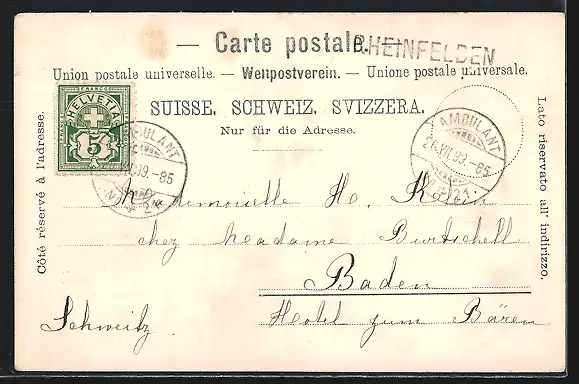 — Carte postale. —
RHEINFELDEN
Union postale universelle. — Weltpostverein. — Unione postale universale.
SUISSE. SCHWEIZ. SVIZZERA.
Nur für die Adresse.
Côté réservé à l'adresse.
Lato riservato all' indirizzo.
HELVETIA
5
AMBULANT
VII.99.-85
AMBULANT
VII.99.-85
Mademoiselle H.
chez Madame Burtschell
Baden
Hotel zum Bären
Schweitz